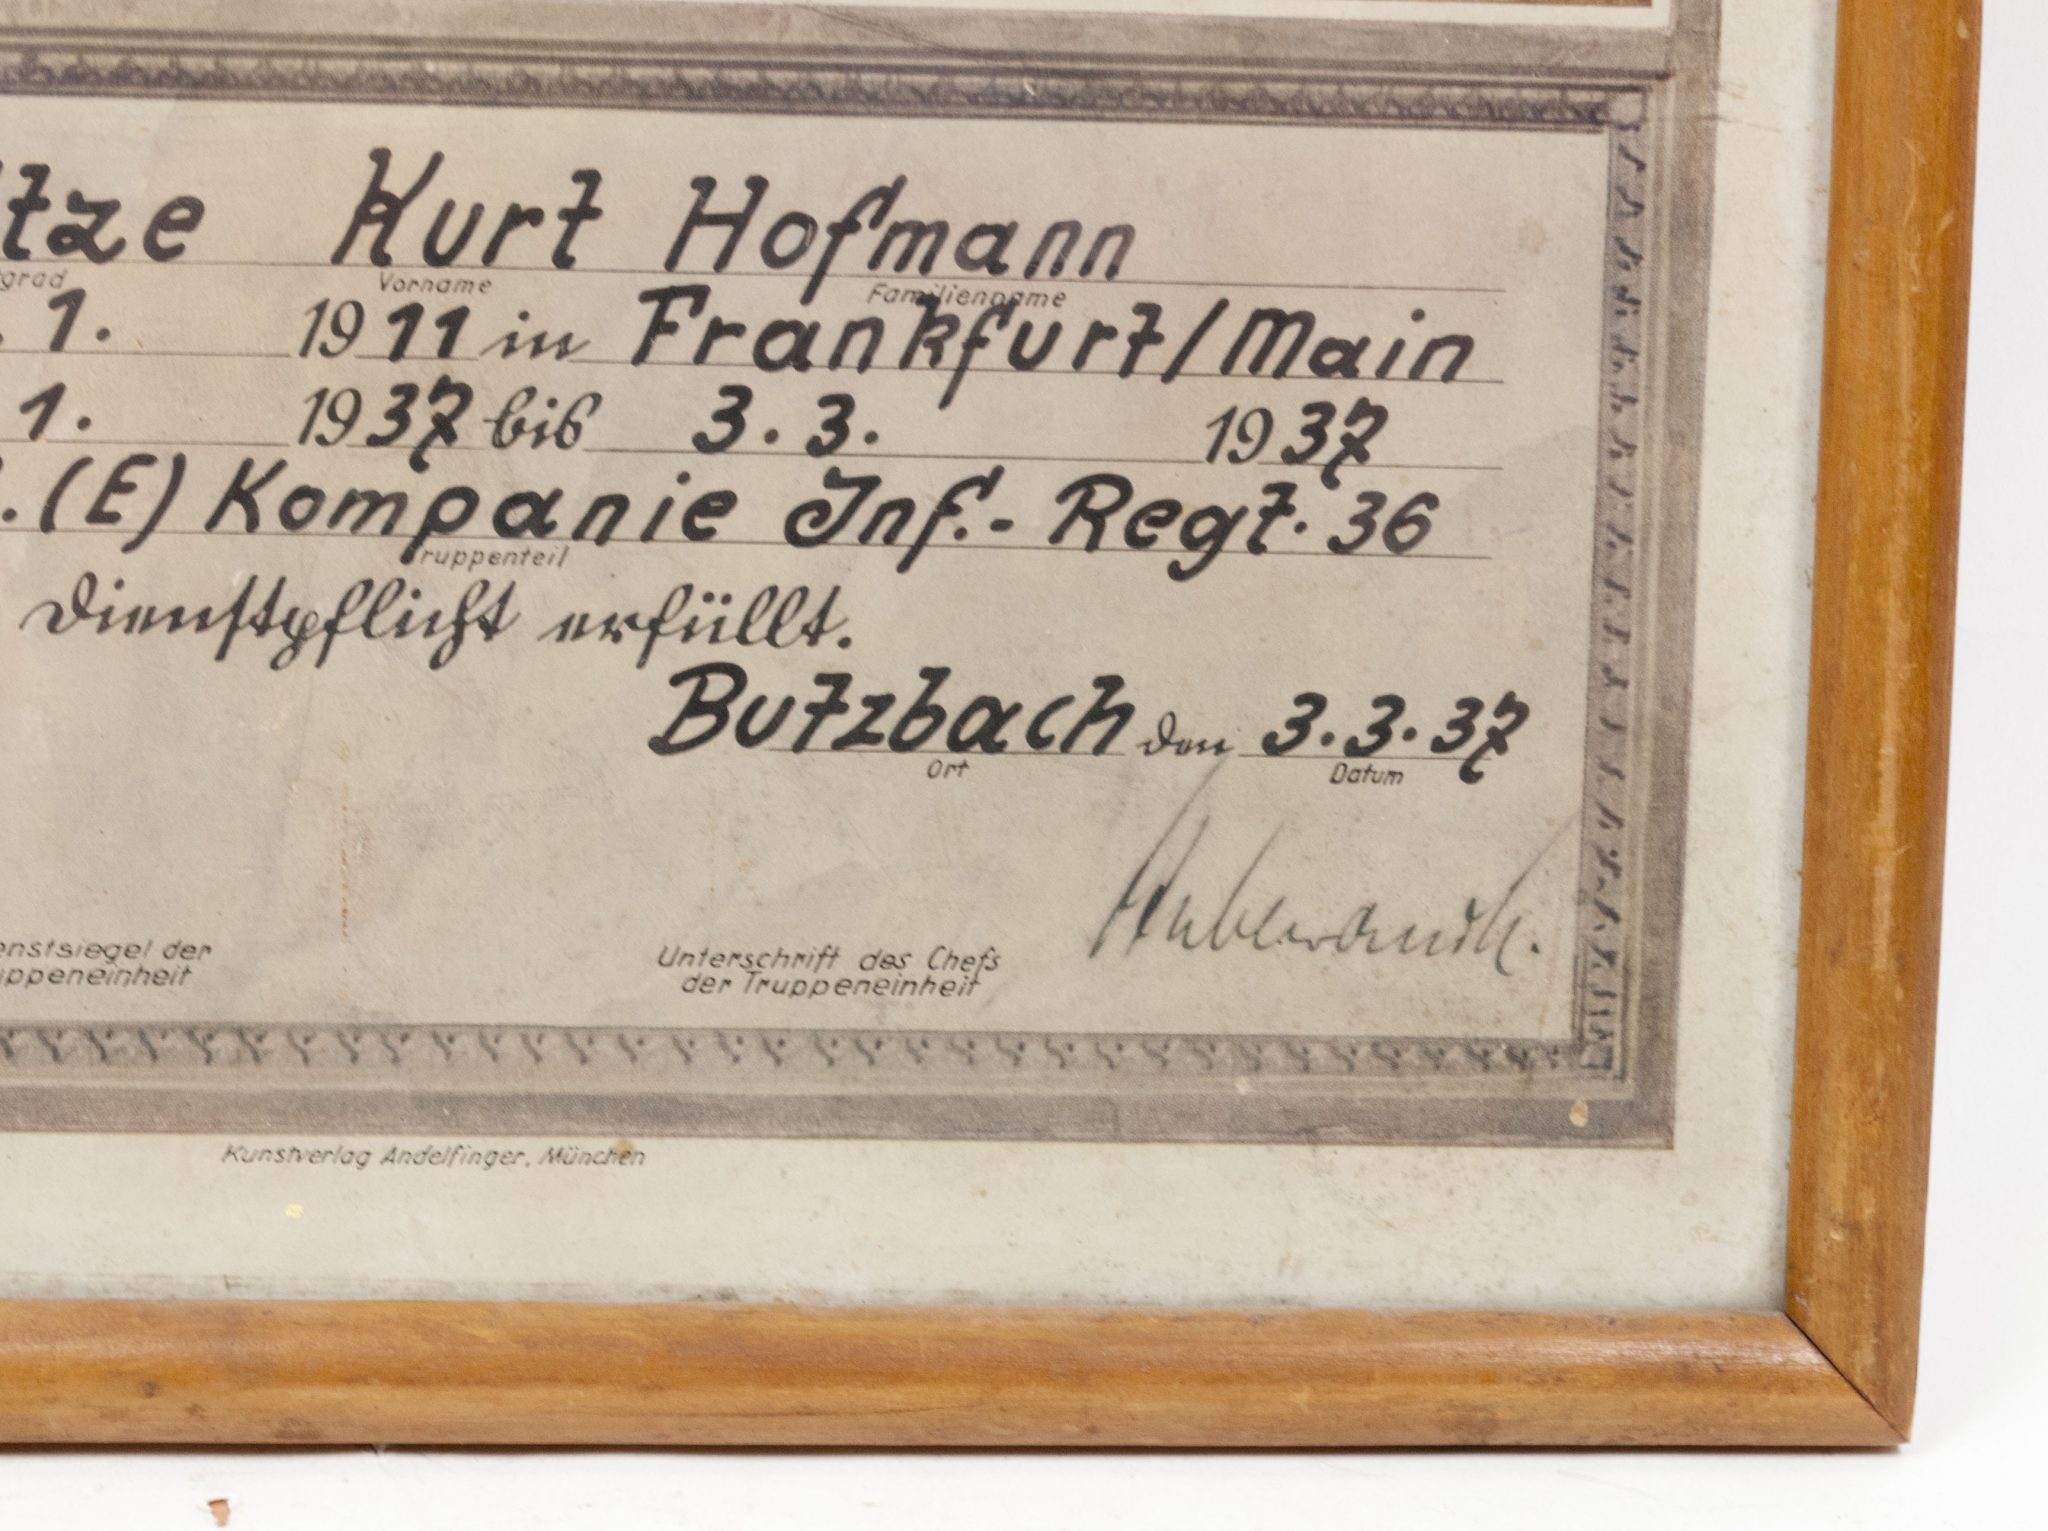 Kurt Hofmann
Vorname Familienname
1. 1911 in Frankfurt/Main
1. 1937 bis 3. 3. 1937
. (E) Kompanie Inf.- Regt. 36
Truppenteil
Dienstpflicht erfüllt.
Butzbach den 3.3.37
Ort Datum
Unterschrift des Chefs
der Truppeneinheit
Kunstverlag Andelfinger, München